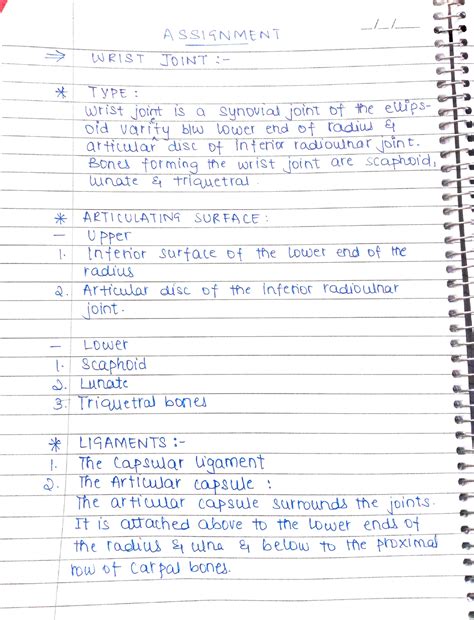 ASSIGNMENT
_/_/_
⇒ WRIST JOINT :-
* TYPE :
Wrist joint is a synovial joint of the ellips-
oid varity b/w lower end of radius &
articular disc of Inferior radioulnar joint.
Bones forming the wrist joint are scaphoid,
lunate & triquetral.
* ARTICULATING SURFACE :
- Upper
1. Inferior surface of the lower end of the
radius
2. Articular disc of the inferior radioulnar
joint.
- Lower
1. Scaphoid
2. Lunate
3. Triquetral bones
* LIGAMENTS :-
1. The Capsular ligament
2. The Articular capsule :
The articular capsule surrounds the joints.
It is attached above to the lower ends of
the radius & ulna & below to the proximal
row of Carpal bones.